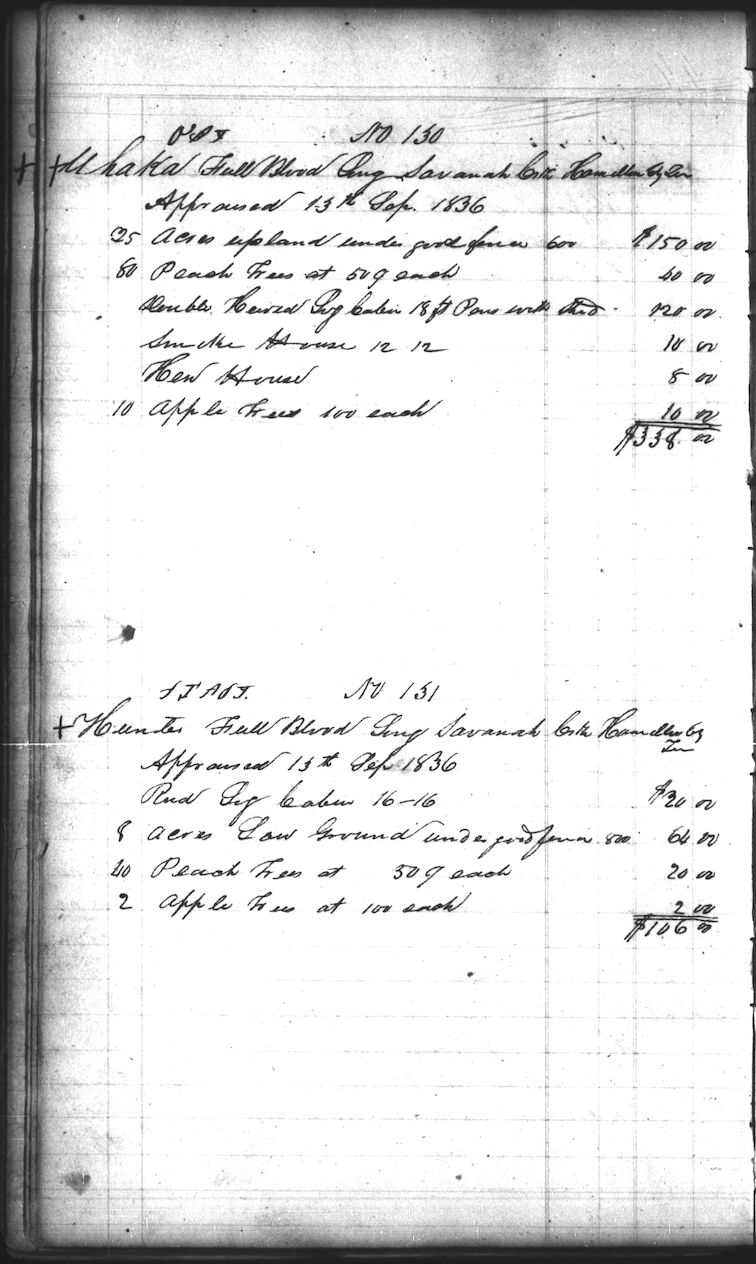 No 130
Uhaka Full Blood Long Savanah Crk Hamilton Cty Ten
Appraised 13th Sep. 1836
25 Acres upland under good fence 600 $150 00
80 Peach Trees at 50¢ each 40 00
Double Hewed Log Cabin 18 ft Pens with Shed 120 00
Smoke House 12 12 10 00
Hen House 8 00
10 Apple Trees 100 each 10 00
$338.00
No 131
Hunter Full Blood Long Savanah Crk Hamilton Cty
Ten
Appraised 13th Sep 1836
Rnd Log Cabin 16-16 $20 00
8 Acres Low Ground under good fence 800 64 00
40 Peach Trees at 50¢ each 20 00
2 Apple Trees at 100 each 2 00
$106 00